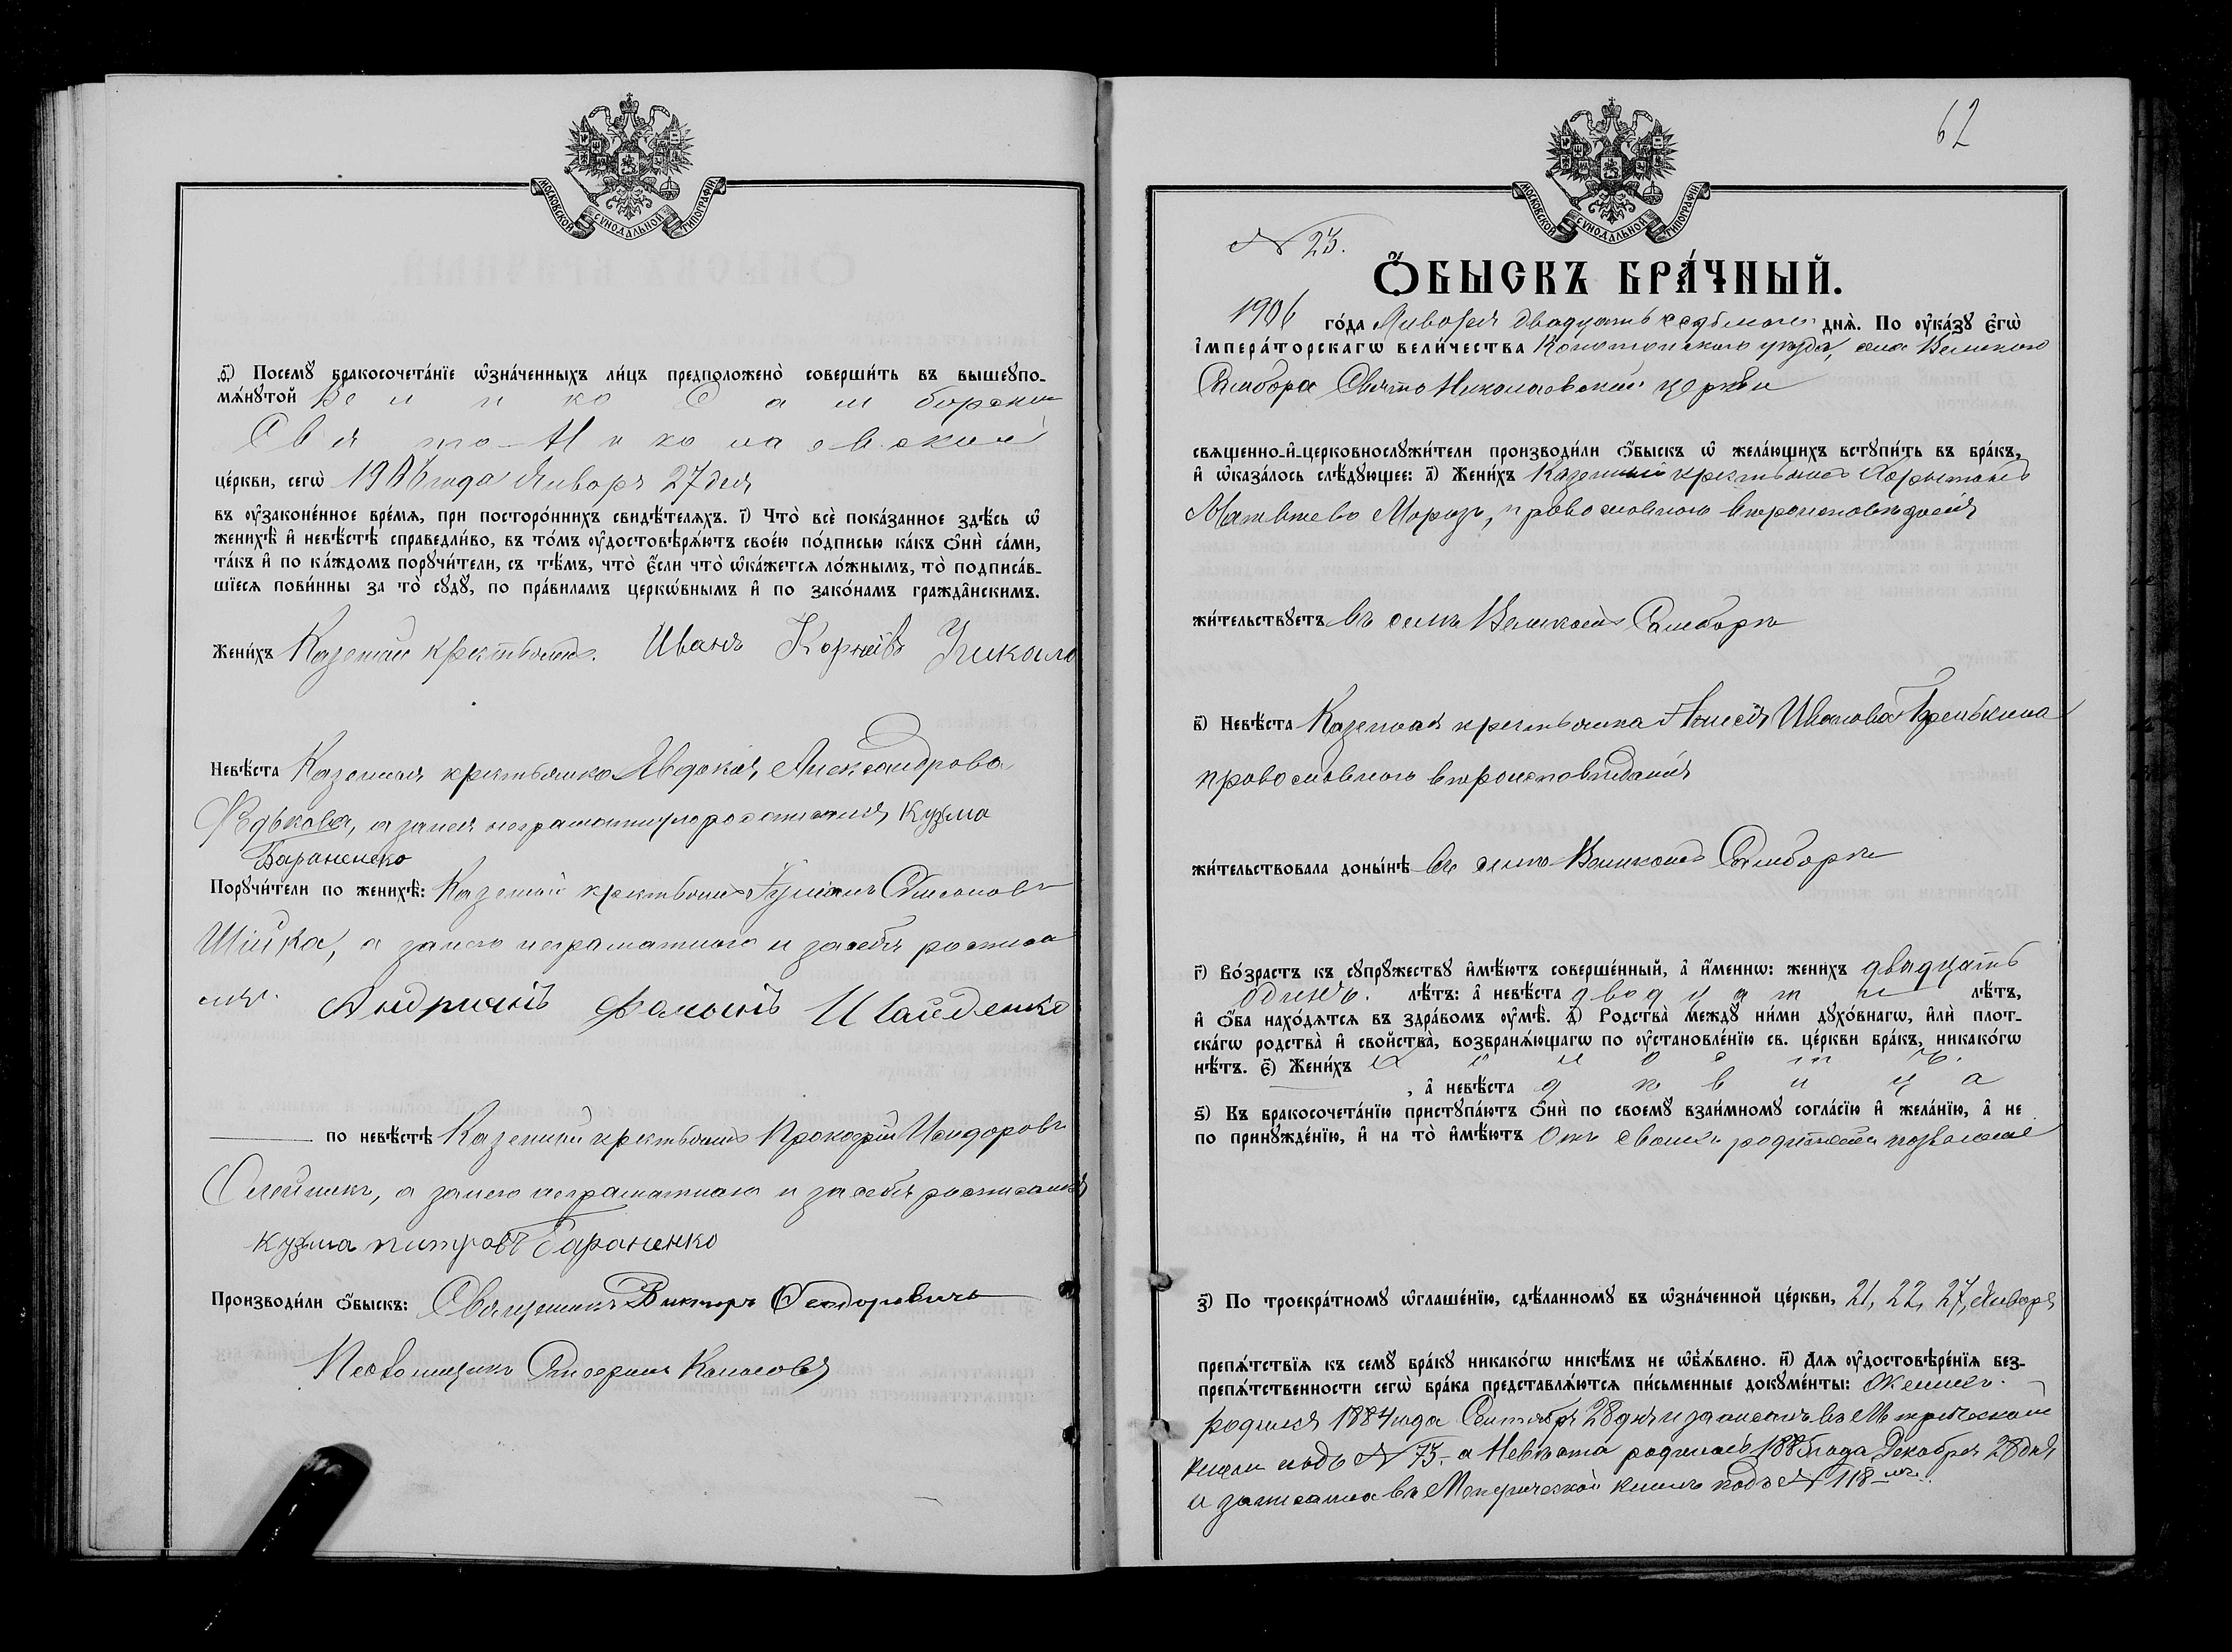 МОСКОВСКОЙ СѴНОДАЛЬНОЙ ТИПОГРАФІИ
ѳ҃) Посемꙋ̀ бракосочета́нїе ѡ҆зна́ченныхъ ли́цъ предположено̀ соверши́ть въ вышеꙋпо-
мѧ́нꙋтой Велико Самборской
Свято-Николаевской
це́ркви, сегѡ̀ 1906 года Января 27 дня
въ ᲂу҆зако́не́нное вре́мѧ, при посторо́ннихъ свидѣ́телѧхъ. і҃) Что̀ всѐ пока́занное здѣ́сь ѡ҆
женихѣ̀ и҆ невѣ́стѣ справедли́во, въ то́мъ ᲂу҆достовѣрѧ́ютъ свое́ю по́дписью ка́къ ѻ҆нѝ са́ми,
та́къ и҆ по ка́ждомъ порꙋчи́тели, съ тѣ́мъ, что̀ є҆́сли что̀ ѡ҆ка́жетсѧ ло́жнымъ, то̀ подписа́в-
шїесѧ пови́нны за то̀ сꙋдꙋ̀, по пра́виламъ церкѡ́внымъ и҆ по зако́намъ гражда̑нскимъ.
Жени́хъ Казенный крестьянинъ Иванъ Корнѣівъ
Невѣ́ста Казенная крестьянка Авдокія Александрова
Федькова, а за нея неграмотную росписался Кузма
Бараненко
Порꙋчи́тели по женихѣ̀: Казенный крестьянинъ Симоновъ
Шійка, а за него неграматного и за себя росписа
лся Андріанъ Шайденко
по невѣ́стѣ Казенный крестьянинъ Прокофій Исидоровъ
Олейникъ, а за него неграматного и за себя росписался
Кузма питровъ Бараненко
Производи́ли ѻ҆́быскъ: Священникъ Викторъ Ѳеодоровичъ
Псаломщикъ
62
МОСКОВСКОЙ СѴНОДАЛЬНОЙ ТИПОГРАФІИ
N 23.
Ѻ҆́БЫСКЪ БРА́ЧНЫЙ.
1906 го́да Января двадцать седьмого днѧ̀. По ᲂу҆ка́зꙋ є҆гѡ̀
і҆мпера́торскагѡ вели́чества Конотопского уѣзда, села Великого
Самбора Свято Николаевской церкви
свѧщенно-и҆-церковнослꙋжи́тели производи́ли ѻ҆́быскъ ѡ҆ жела́ющихъ встꙋпи́ть въ бра́къ,
и҆ ѡ҆каза́лось слѣ́дꙋющее: а҃) Жени́хъ Казенный крестьянинъ Харытонъ
Матвѣевъ Морозъ, православного вѣроисповѣданія
жи́тельствꙋетъ въ селѣ Великомъ Самборѣ
в҃) Невѣ́ста Казенная крестьянка Анисія Иванова
православного вѣроисповѣданія
жи́тельствовала доны́нѣ въ селѣ Великомъ Самборѣ
г҃) Во́зрастъ къ сꙋпрꙋ́жествꙋ и҆мѣ́ютъ соверше́нный, а҆ и҆́меннѡ: жени́хъ двадцать
одинъ. лѣ́тъ: а҆ невѣ́ста двадцати лѣ́тъ,
и҆ ѻ҆́ба нахо́дѧтсѧ въ здра́вомъ ᲂу҆мѣ̀. д҃) Родства̀ междꙋ̀ ни́ми дꙋхо́внагѡ, и҆лѝ плот-
ска́гѡ родства̀ и҆ сво́йства̀, возбранѧ́ющагѡ по ᲂу҆становле́нїю св. це́ркви бра́къ, никако́гѡ
нѣ́тъ. є҃) Жени́хъ холостъ.
, а҆ невѣ́ста дѣвица
ѕ҃) Къ бракосочета́нїю пристꙋпа́ютъ ѻ҆нѝ по своемꙋ̀ взаи́мномꙋ согла́сїю и҆ жела́нїю, а҆ не
по принꙋжде́нїю, и҆ на то̀ и҆мѣ́ютъ отъ своихъ родителей позволеніе
з҃) По троекра́тномꙋ ѡ҆глаше́нїю, сдѣ́ланномꙋ въ ѡ҆зна́ченной це́ркви, 21, 22, 27, Января
препѧ́тствїѧ къ семꙋ̀ бра́кꙋ никако́гѡ никѣ́мъ не ѡ҆б̾ѧ́влено. и҃) Длѧ ᲂу҆достовѣре́нїѧ без-
препѧ́тственности сегѡ̀ бра́ка представлѧ́ютсѧ пи́сьменные докꙋме́нты: Женихъ
родился 1884 года Сентября 28 дня и записанъ въ Метрической
книги подъ N 73. а Невѣста родилась 1885 года Декабря 28 дня
и записана въ Метрической книгѣ подъ N 118